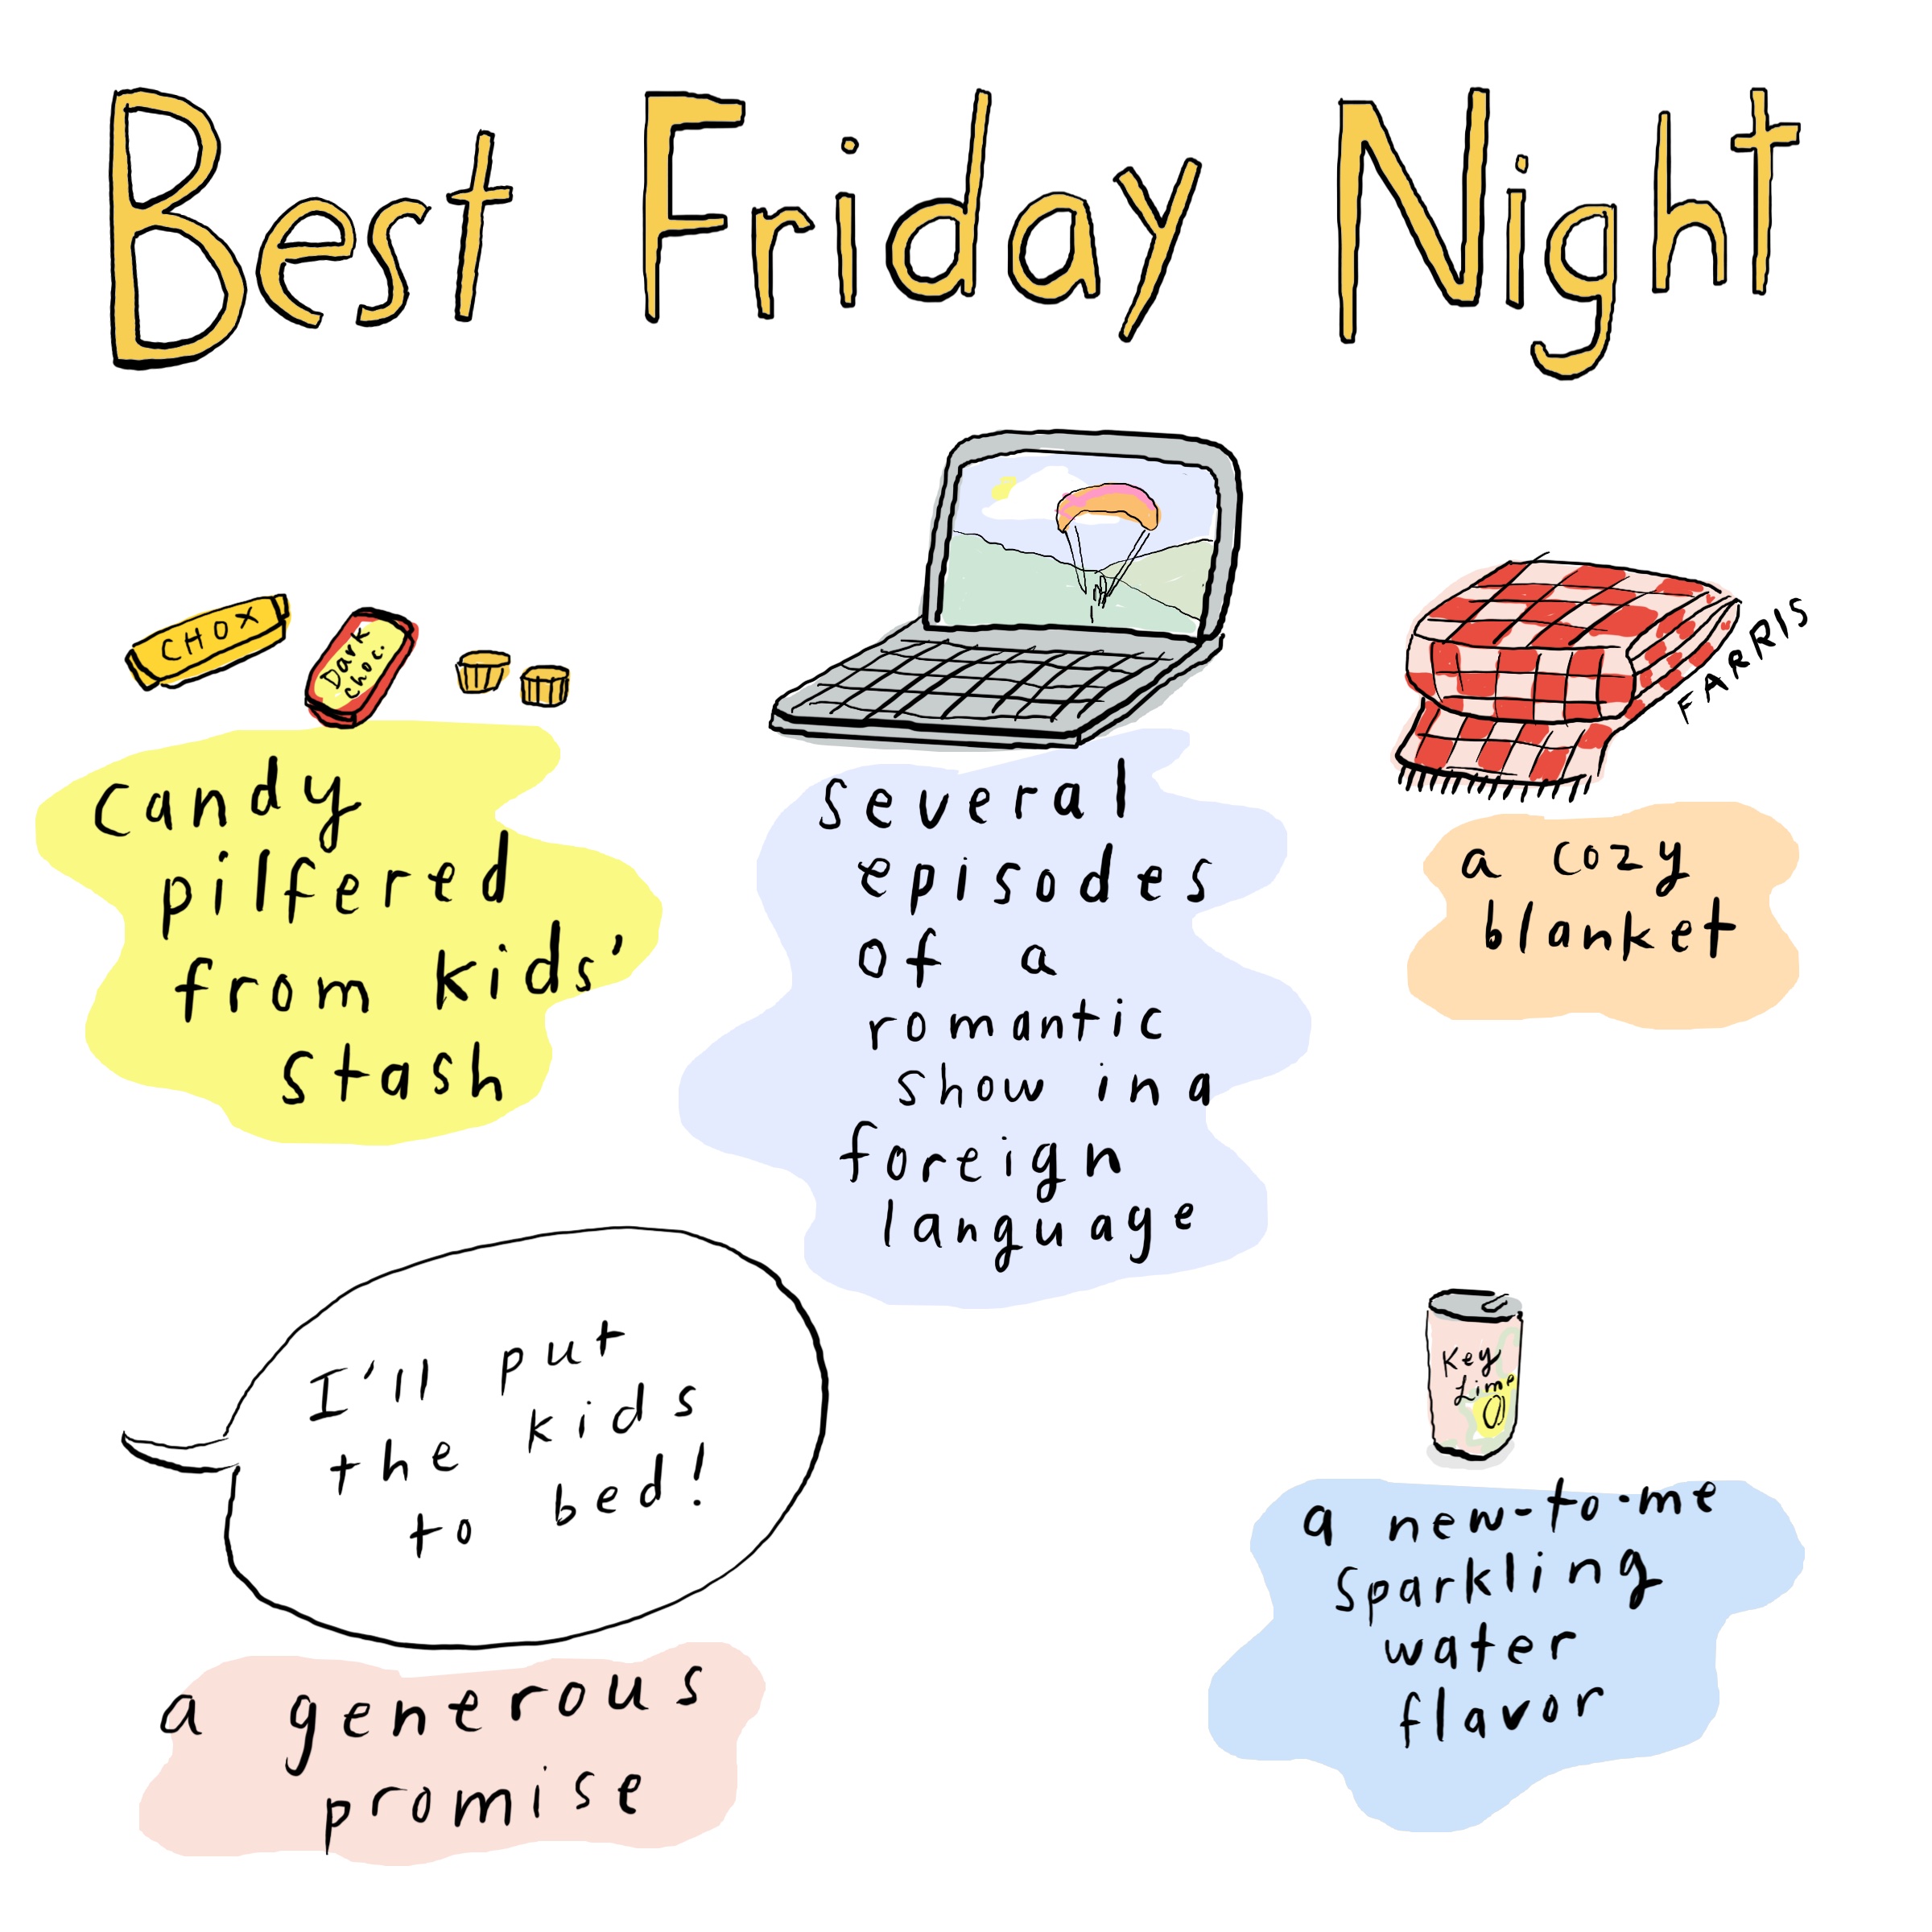 Best Friday Night
CHOX
Dark
choc.
candy
pilfered
from kids'
stash
several
episodes
of a
romantic
show in a
foreign
language
FARRIS
a cozy
blanket
I'll put
the kids
to bed!
a generous
promise
Key
Lime
a new-to-me
sparkling
water
flavor